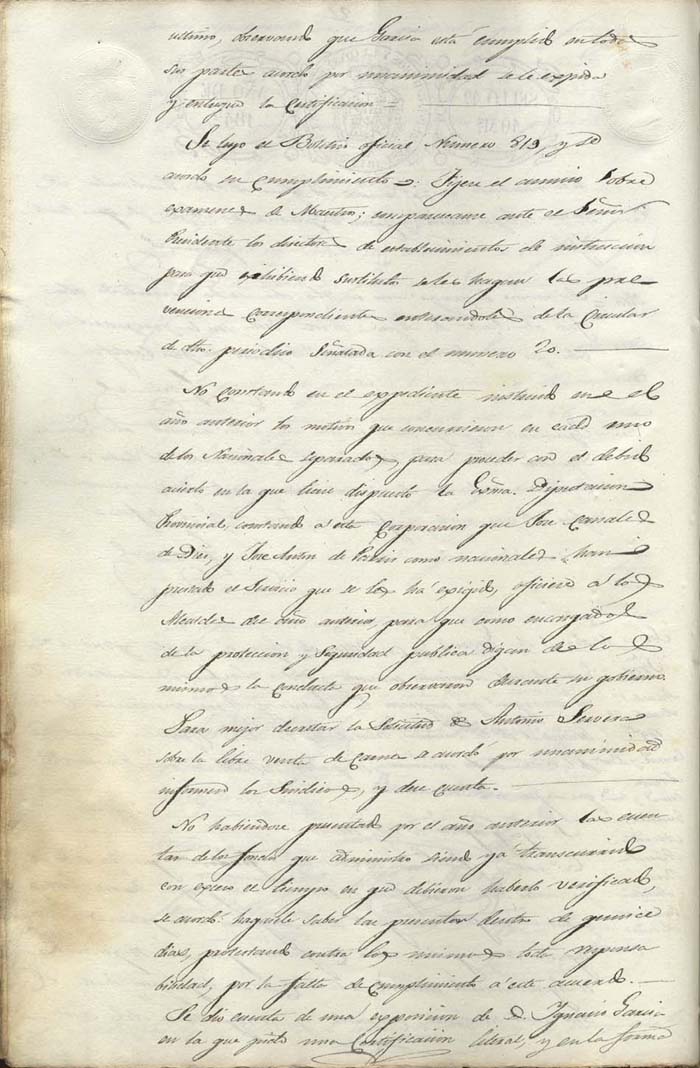 ultimo, observando que Garcia está cumplido en todas
sus partes acordó por unanimidad se le expida
y entregue la Certificacion =
Se leyo el Boletin oficial Numero 519, y se
acordó su cumplimiento: Fijese el anuncio sobre
examenes de Maestros; comparezcan ante el Señor
Presidente los directores de establecimientos de instruccion
para que exhibiendo sus titulos se les hagan las pre
venciones correspondientes enterandoles de la Circular
de dho. periodico Señalada con el numero 20.
No constando en el expediente instruido en el
año anterior los motivos que concurrieron en cada uno
de los Nacionales separados, para proceder con el debido
acierto en la que tiene dispuesto la Exma. Diputacion
Provincial, constando á esta Corporacion que Jose Canales
de Dios, y Jose Anton de como nacionales han
prestado el Servicio que se les há exigido, oficiese á los
Alcaldes del año anterior, para que como encargados
de la proteccion y Seguridad publica digan de los
mismos la conducta que observaron durante su gobierno.
Para mejor decretar la Solicitud de Antonio Server
sobre la libre venta de Carnes se acordó por unanimidad
informen los Sindicos, y dese cuenta.
No habiendose presentado por el año anterior las cuen
tas de los fondos que administro siendo yá transcurrido
con exceso el tiempo en que debieron haberlo verificado,
se acordó hagasele saber las presenten dentro de quince
dias, protestando contra los mismos toda responsa
bilidad, por la falta de cumplimiento á este acuerdo.
Se dio cuenta de una exposicion de D. Ignacio Garcia
en la que pide una Certificacion literal, y en la forma